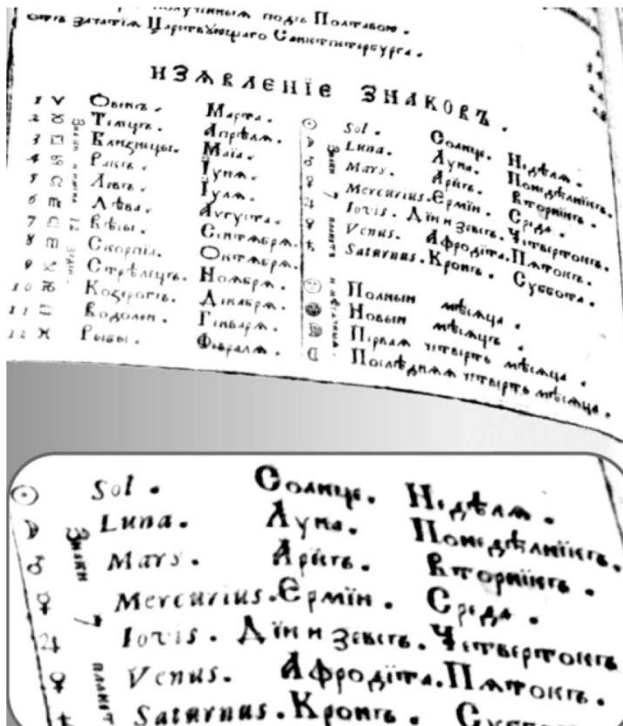 подъ Полтавою.
отъ зачатїѧ Царствующаго Санктпитербурга.
изѧвленїе знаковъ.
1 ♈ Овенъ. Марта.
2 ♉ Телецъ. Апрѣлѧ.
3 ♊ Близницы. Маїа.
4 ♋ Ракъ. Їунѧ.
5 ♌ Левъ. Їулѧ.
6 ♍ Дѣва. Августа.
7 ♎ Вѣсы. Сентѧбрѧ.
8 ♏ Скорпїа. Октѧбрѧ.
9 ♐ Стрѣлецъ. Ноѧбрѧ.
10 ♑ Козерогъ. Декабрѧ.
11 ♒ Водолей. Генварѧ.
12 ♓ Рыбы. Февралѧ.
☉ Sol. Солнце. Недѣлѧ.
☽ Luna. Луна. Понедѣлникъ.
♂ Mars. Арисъ. Вторникъ.
☿ Mercurius. Ермїн. Среда.
♃ Iovis. Дїй и Зевесъ. Четвертокъ.
♀ Venus. Афродїта. Пѧтокъ.
♄ Saturnus. Кронъ. Суббота.
Знаки 7 планет
Полный мѣсѧца.
Новый мѣсѧцъ.
Первая четверть мѣсѧца.
Послѣднѧѧ четверть мѣсѧца.
☉ Sol. Солнце. Недѣлѧ.
☽ Luna. Луна. Понедѣлнїкъ.
♂ Mars. Арисъ. Вторнїкъ.
☿ Mercurius. Ермїн. Среда.
♃ Iovis. Дїй и Зевесъ. Четвертокъ.
♀ Venus. Афродїта. Пѧтокъ.
♄ Saturnus. Кронъ.
Знаки 7 планет